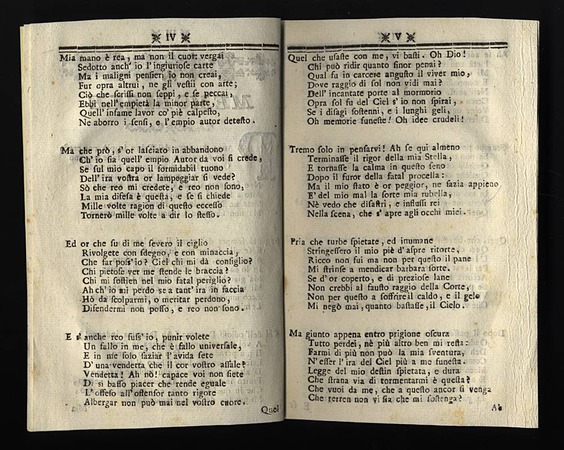 IV
Mia mano è rea, ma non il cuor: vergai
Sedotto anch' io l' ingiuriose carte
Ma i maligni pensieri io non creai,
Fur opra altrui, ne gli vestii con arte;
Ciò che scrissi non seppi, e se peccai,
Ebbi nell' empietà la minor parte,
Quell' insame lavor co' piè calpesto,
Ne aborro i sensi, e l' empio autor detesto.
Ma che prò, s' or lasciato in abbandono
Ch' io sia quell' empio Autor da voi si crede,
Se sul mio capo il formidabil tuono
Dell' ira vostra or lampeggiar si vede?
Sò che reo mi credete, e reo non sono,
La mia difesa è questa, e se si chiede
Mille volte ragion di questo eccesso
Tornerò mille volte a dir lo stesso.
Ed or che su di me severo il ciglio
Rivolgete con sdegno, e con minaccia,
Che far poss' io? Ciel chi mi dà consiglio?
Chi pietose ver me stende le braccia?
Chi mi sostien nel mio fatal periglio?
Ah ch' io mi perdo se a tant' ira in faccia
Hò da scolparmi, o meritar perdono,
Disendermi non posso, e reo non sono.
E s' anche reo fuss' io, punir volete
Un fallo in me, che è fallo universale,
E in me solo saziar l' avida sete
D' una vendetta che il cor vostro assale?
Vendetta! Ah nò! capace voi non siete
Di sì basso piacer che rende eguale
L' offeso all' offensor tanto rigore
Albergar non può mai nel vostro cuore.
Quel
V
Quel che usaste con me, vi basti. Oh Dio!
Chi può ridir quanto finor penai?
Qual fu in carcere angusto il viver mio,
Dove raggio di sol non vidi mai?
Dell' incantate porte al mormorio
Opra sol fu del Ciel s' io non spirai,
Se i disagi sostenni, e i lunghi geli,
Oh memorie funeste! Oh idee crudeli!
Tremo solo in pensarvi! Ah se quì almeno
Terminasse il rigor della mia Stella,
E tornasse la calma in questo seno
Dopo il furor della fatal procella:
Ma il mio stato è or peggior, ne sazia appieno
E' del mio mal la sorte mia rubella,
Nè vedo che disastri, e influssi rei
Nella scena, che s' apre agli occhi miei.
Pria che turbe spietate, ed inumane
Stringessero il mio piè d' aspre ritorte,
Ricco non fui ma non per questo il pane
Mi strinse a mendicar barbara sorte.
Se d' or coperto, e di preziose lane
Non crebbi al fausto raggio della Corte,
Non per questo a soffrire il caldo, e il gelo
Mi negò mai, quanto bastasse, il Cielo.
Ma giunto appena entro prigione oscura
Tutto perdei, nè più altro ben mi resta:
Farmi di più non può la mia sventura,
N' esser l' ira del Ciel più a me funesta.
Legge del mio destin spietata, e dura
Che strana via di tormentarmi è questa?
Che vuoi da me, che a questo ancor si venga
Che terren non vi sia che mi sostenga?
Ah